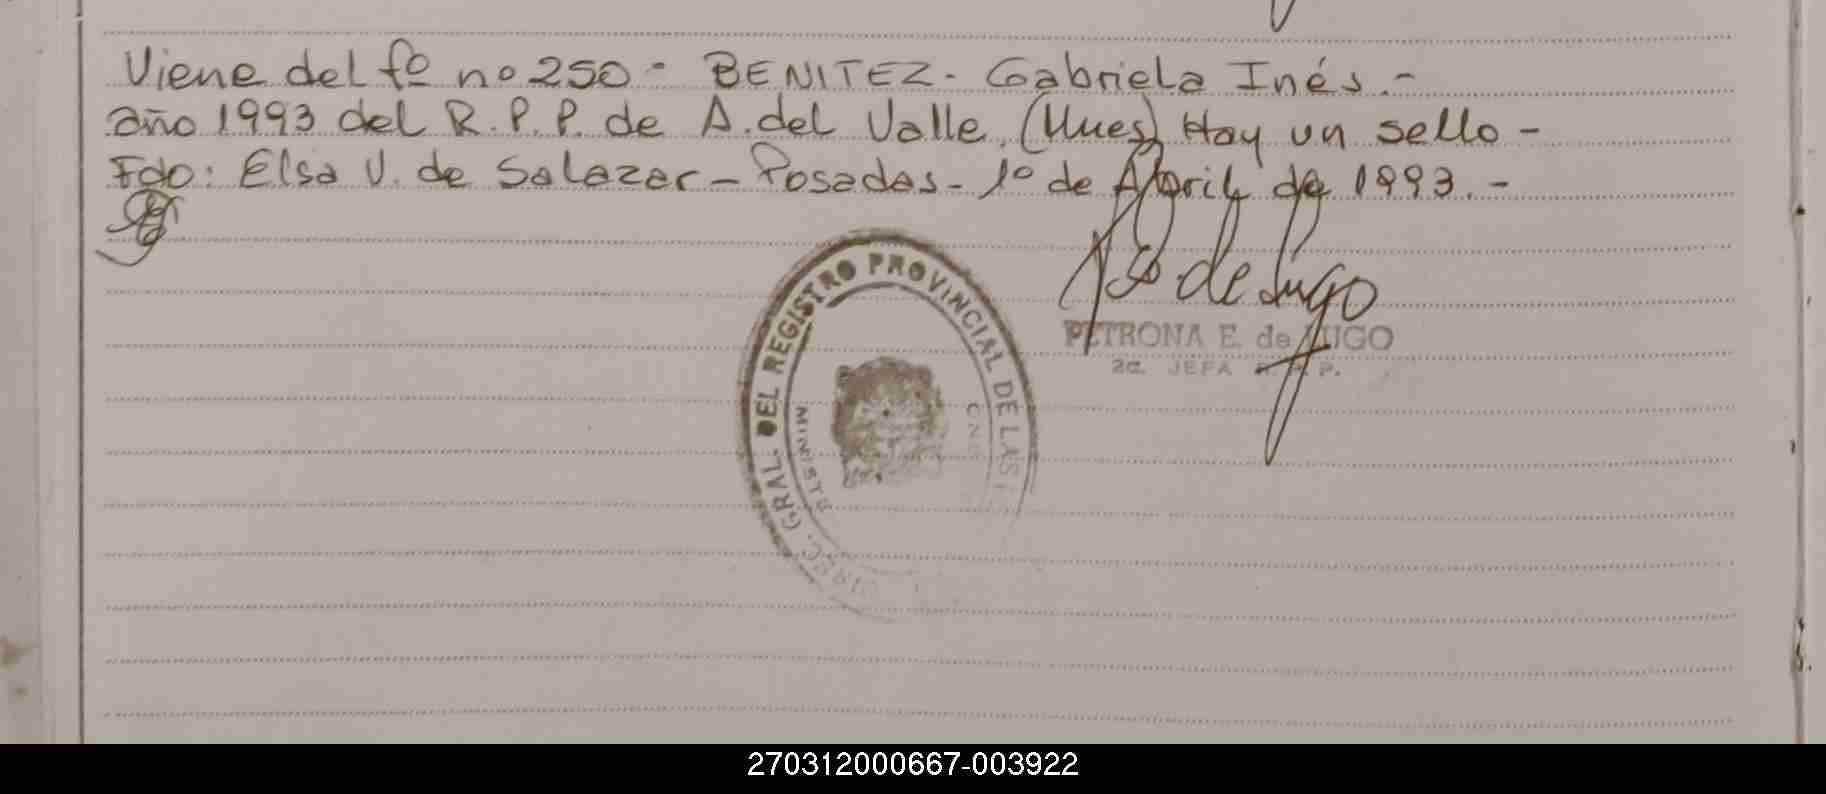 Viene del fº nº 250 - BENITEZ - Gabriela Inés.-
año 1993 del R.P.P. de A. del Valle, (Mnes) Hay un sello -
Fdo: Elsa V. de Salazar - Posadas - 1º de Abril de 1993.-
DIREC. GRAL. DEL REGISTRO PROVINCIAL DE LAS
MINISTE
de Lugo
PETRONA E. de LUGO
2a. JEFA R. P. P.
270312000667-003922